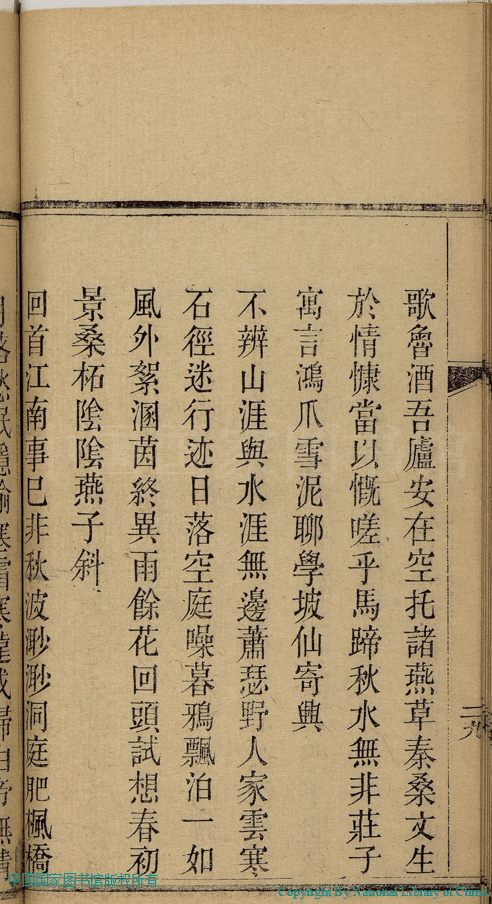 歌魯酒吾廬安在空托諸燕草秦桑文生
於情慷當以慨嗟乎馬蹄秋水無非莊子
寓言鴻爪雪泥聊學坡仙寄興
不辨山涯與水涯無邊蕭瑟野人家雲寒
石徑迷行迹日落空庭噪暮鴉飄泊一如
風外絮溷茵終異雨餘花回頭試想春初
景桑柘陰陰燕子斜
回首江南事已非秋波渺渺洞庭肥楓橋
二九
中国国家图书馆版权所有
Copyright By National Library of China